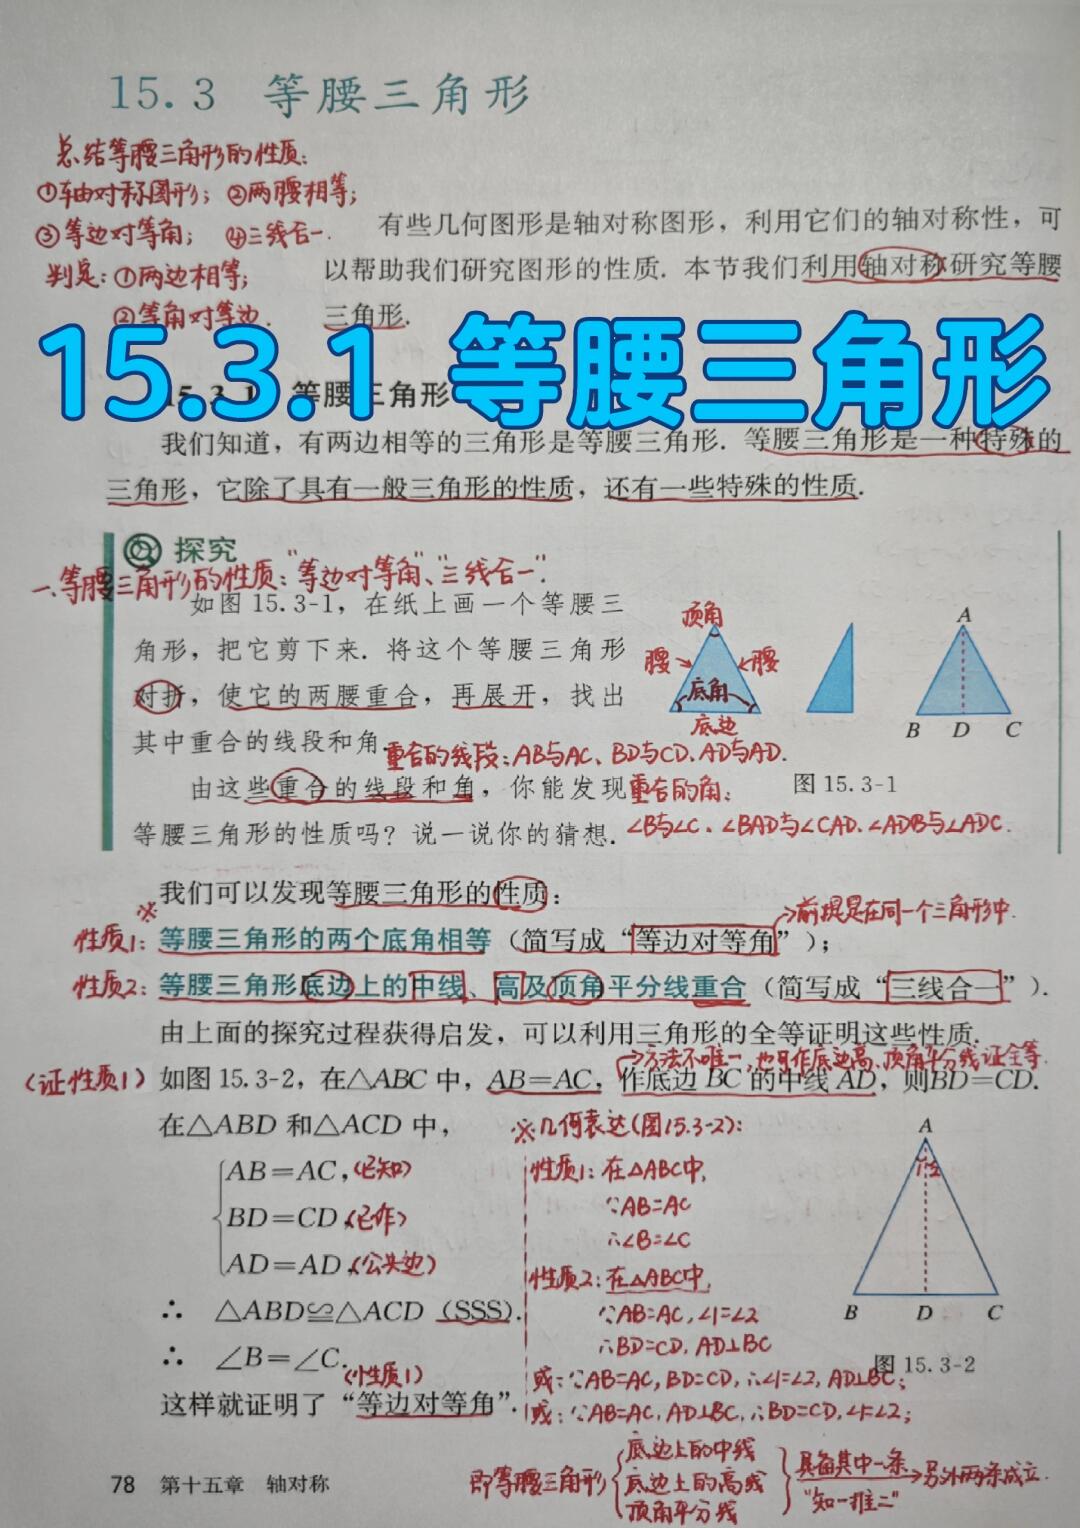 15.3 等腰三角形
总结等腰三角形的性质：
①轴对称图形；②两腰相等；
③等边对等角；④三线合一.
判定：①两边相等；
②等角对等边.
有些几何图形是轴对称图形，利用它们的轴对称性，可
以帮助我们研究图形的性质. 本节我们利用轴对称研究等腰
三角形.
15.3.1 等腰三角形
15.3.1 等腰三角形
我们知道，有两边相等的三角形是等腰三角形. 等腰三角形是一种特殊的
三角形，它除了具有一般三角形的性质，还有一些特殊的性质.
探究
一、等腰三角形的性质：“等边对等角”、“三线合一”.
如图 15.3-1，在纸上画一个等腰三
角形，把它剪下来. 将这个等腰三角形
对折，使它的两腰重合，再展开，找出
其中重合的线段和角.
重合的线段：AB与AC、BD与CD、AD与AD.
由这些重合的线段和角，你能发现
等腰三角形的性质吗？说一说你的猜想.
重合的角：
∠B与∠C、∠BAD与∠CAD、∠ADB与∠ADC.
顶角
腰 腰
底角
底边
A
B D C
图 15.3-1
我们可以发现等腰三角形的性质：
→前提是在同一个三角形中.
※
性质1：等腰三角形的两个底角相等（简写成“等边对等角”）；
性质2：等腰三角形底边上的中线、高及顶角平分线重合（简写成“三线合一”）.
由上面的探究过程获得启发，可以利用三角形的全等证明这些性质.
→方法不唯一，也可作底边高、顶角平分线证全等.
（证性质1）如图 15.3-2，在△ABC 中，AB=AC，作底边 BC 的中线 AD，则BD=CD.
在△ABD 和△ACD 中，
AB=AC，（已知）
BD=CD，（已作）
AD=AD，（公共边）
∴ △ABD≌△ACD（SSS）.
∴ ∠B=∠C.
（性质1）
这样就证明了“等边对等角”.
※几何表达(图15.3-2)：
性质1：在△ABC中，
∵AB=AC
∴∠B=∠C
性质2：在△ABC中，
∵AB=AC，∠1=∠2
∴BD=CD，AD⊥BC
或：∵AB=AC，BD=CD，∴∠1=∠2，AD⊥BC；
或：∵AB=AC，AD⊥BC，∴BD=CD，∠1=∠2；
A
1 2
B D C
图 15.3-2
即等腰三角形
底边上的中线
底边上的高线
顶角平分线
具备其中一条→另外两条成立.
“知一推二”
78 第十五章 轴对称